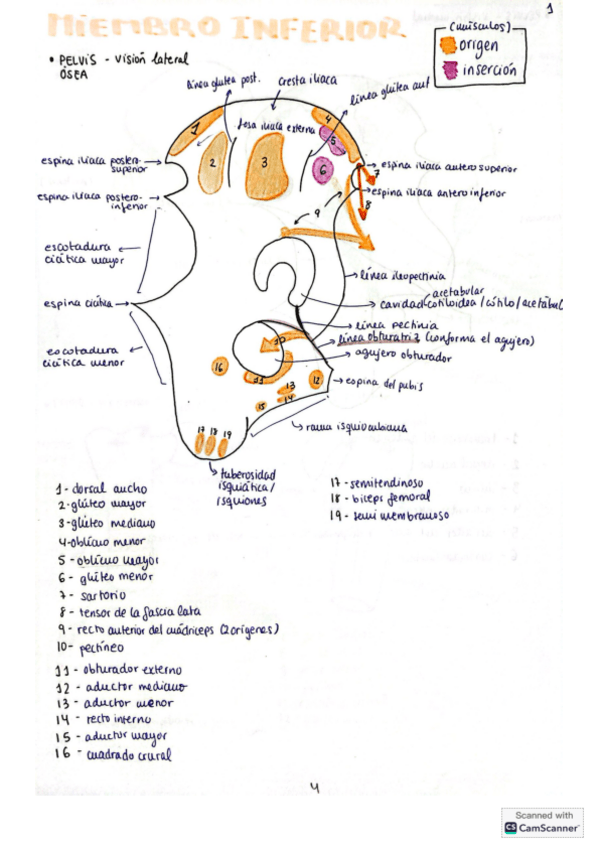 1
MIEMBRO INFERIOR
(músculos)
origen
inserción
• PELVIS - visión lateral
ÓSEA
línea glútea post.
cresta ilíaca
línea glútea ant
fosa ilíaca externa
1
2
3
4
5
6
7
8
9
espina ilíaca postero-
superior
espina ilíaca antero superior
espina ilíaca postero-
inferior
espina ilíaca antero inferior
escotadura
ciática mayor
línea ileopectinia
acetabular
cavidad cotiloidea / cótilo / acetábul
espina ciática
línea pectinia
línea obturatriz (conforma el agujero)
agujero obturador
escotadura
ciática menor
10
16
11
13
12
14
15
espina del pubis
rama isquiopubiana
17 18 19
tuberosidad
isquiática /
isquiones
1 - dorsal ancho
2 - glúteo mayor
3 - glúteo mediano
4 - oblícuo menor
5 - oblícuo mayor
6 - glúteo menor
7 - sartorio
8 - tensor de la fascia lata
9 - recto anterior del cuádriceps (2 orígenes)
10 - pectíneo
11 - obturador externo
12 - aductor mediano
13 - aductor menor
14 - recto interno
15 - aductor mayor
16 - cuadrado crural
17 - semitendinoso
18 - bíceps femoral
19 - semi membranoso
4
Scanned with
CS CamScanner